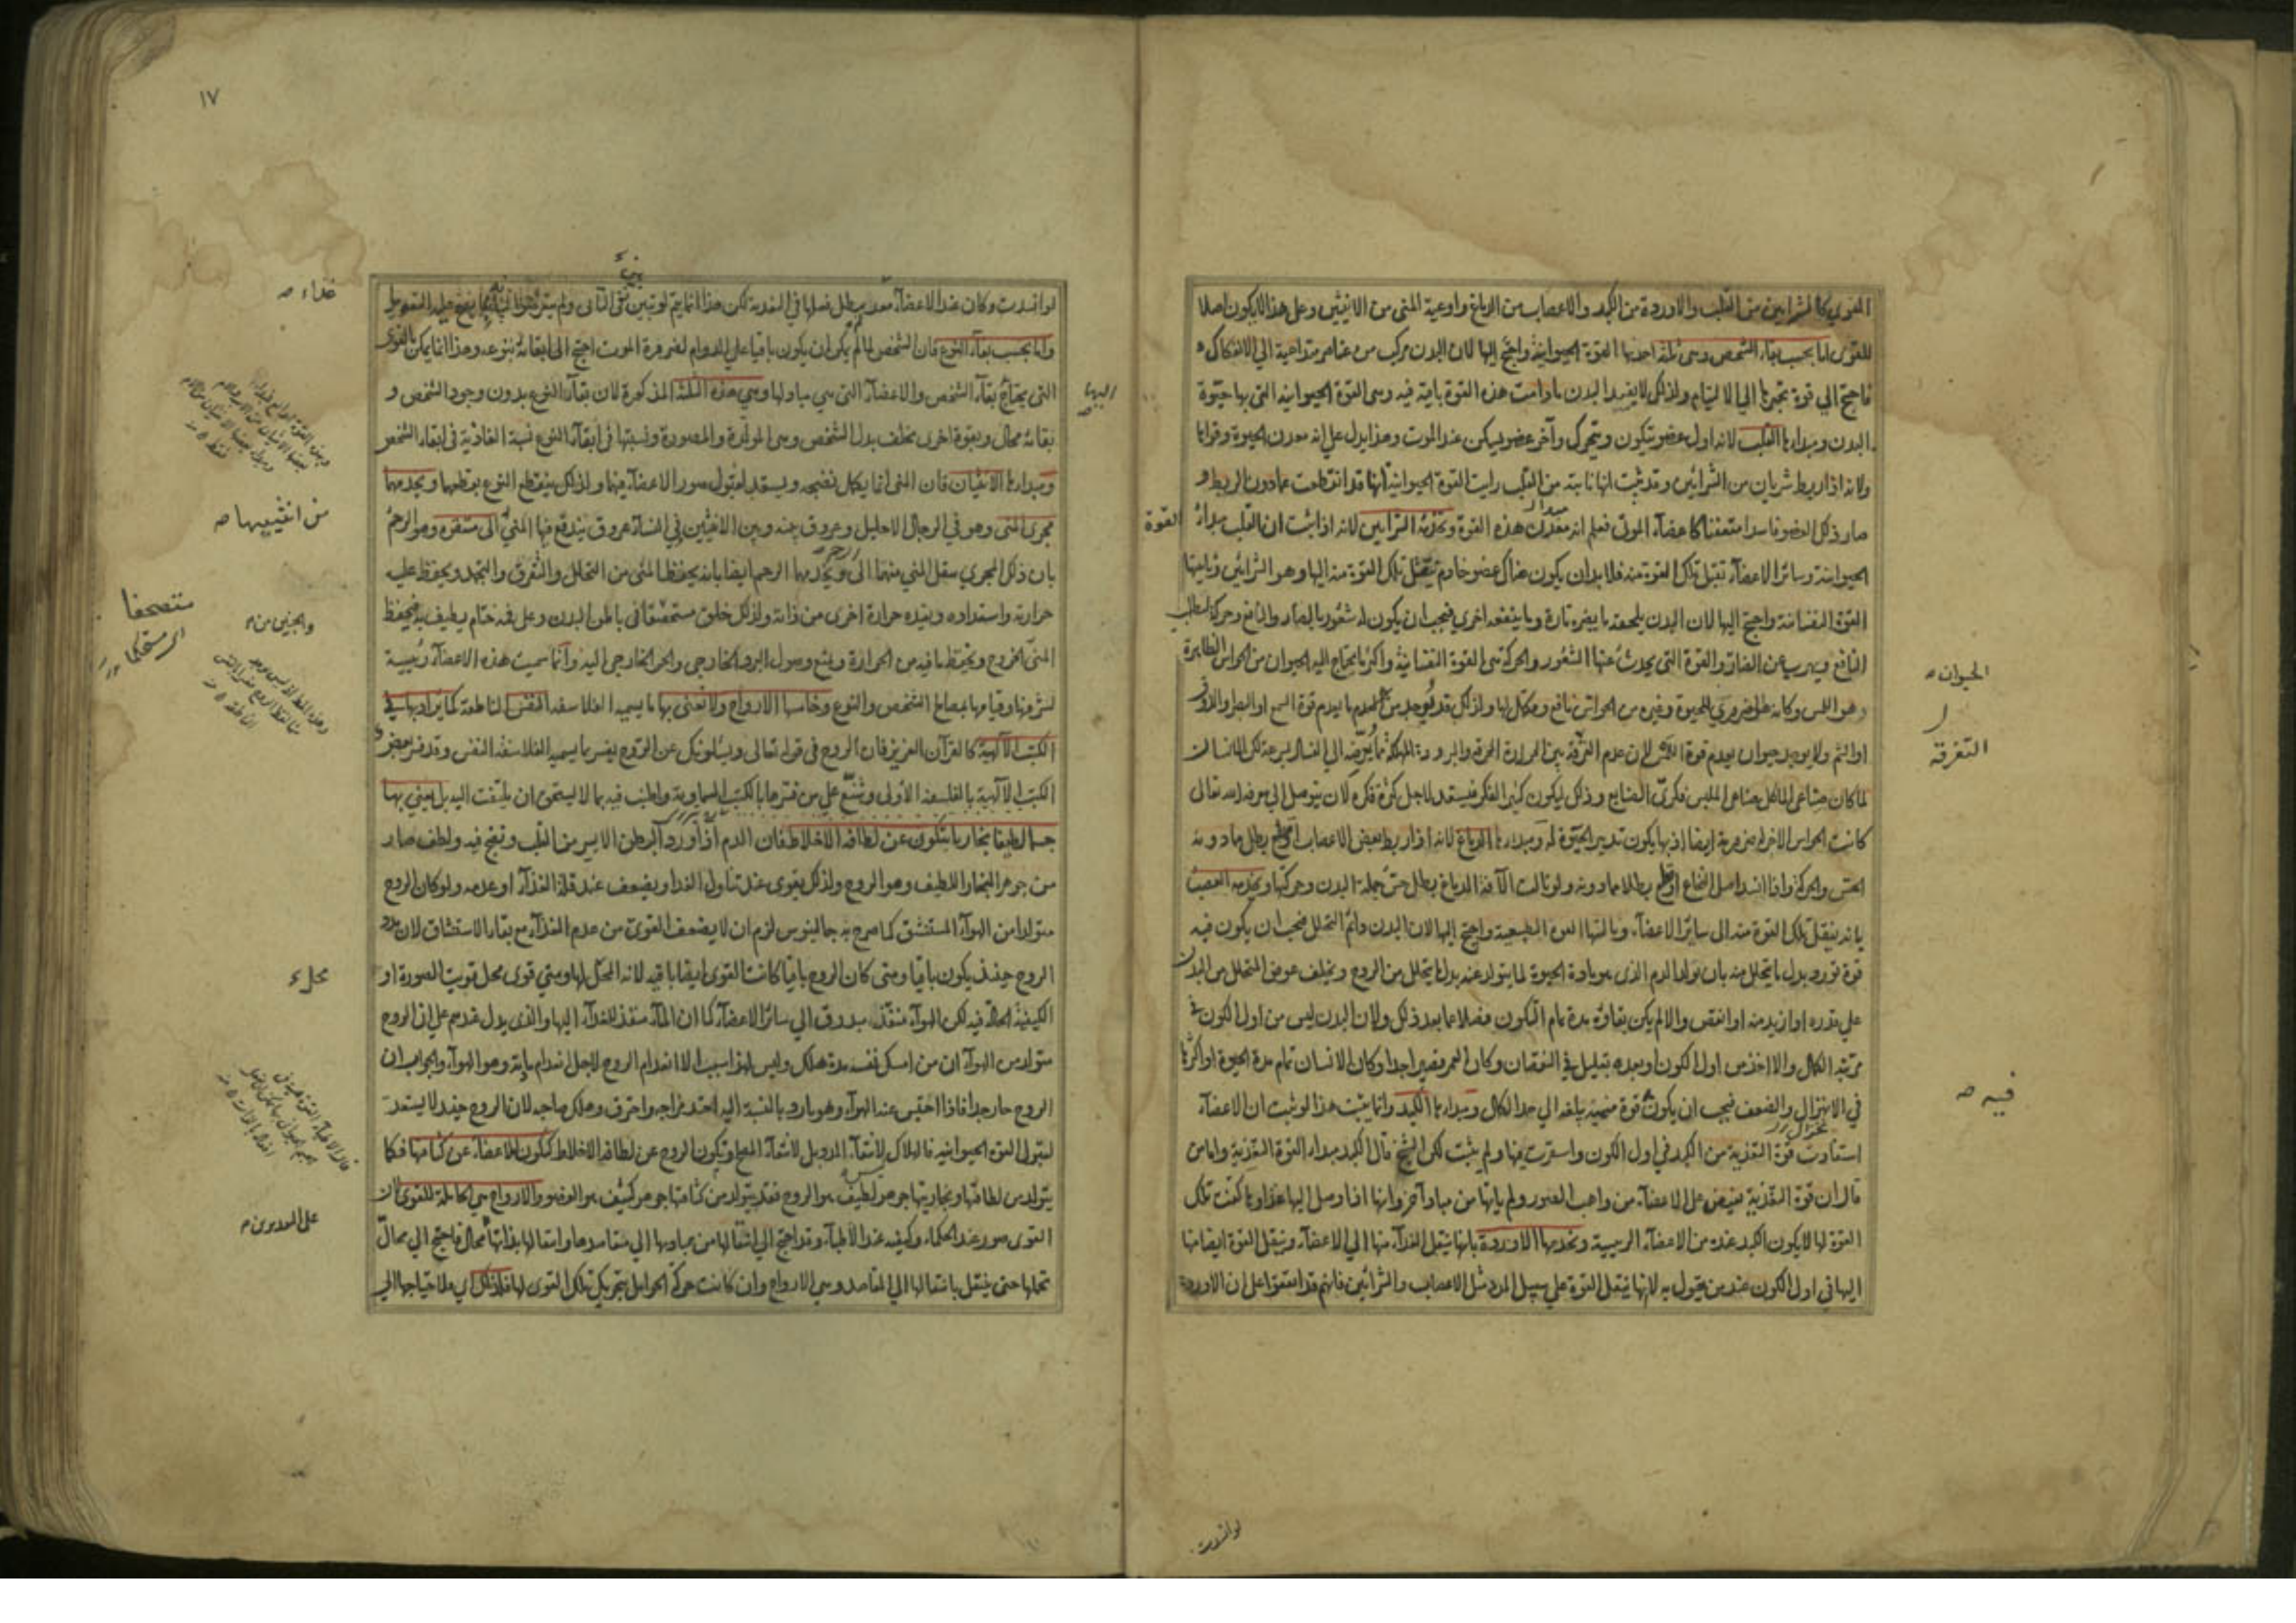 القوي كالشرايين من القلب والاوردة من الكبد والاعصاب من الدماغ واوعية المنى من الانثيين وعلى هذا لا يكون اصلا
للقوى اما بحسب بقاء الشخص وهى ثلثة احدها القوة الحيوانية واحتج اليها لان البدن مركب من عناصر متداعية الي الانفكاك
فاحتج الي قوة تجبرها الي الالتيام ولذلك لا يفسد البدن مادامت هذه القوة باقية فيه وهى القوة الحيوانية التى بها حيوة
البدن ومبدأها القلب لانه اول عضو يتكون ويتحرك وآخر عضو يسكن عند الموت وهذا يدل على انه معدن الحيوة وقواها
ولانه اذا ربط شريان من الشرائين وقد ثبت انها نابتة من القلب رايت القوة الحيوانية انها قد انقطعت عما دون الربط و
صار ذلك العضو فاسدا متعفنا كاعضاء الموتى فعلم انه معدن هذه القوة وتخدمه الشرايين لانه اذا ثبت ان القلب مبدأ
القوة
الحيوانية وسائر الاعضاء تقبل تلك القوة منه فلا بد ان يكون هناك عضو خادم ينقل تلك القوة منه اليها وهو الشرائين وثانيها
القوة النفسانية واحتج اليها لان البدن يلحقه ما يضره تارة وما ينفعه اخرى فيجب ان يكون له شعور بالضار والنافع وحركة لطلب
النافع ويهرب عن الضار والقوة التى يحدث عنها الشعور والحركة هى القوة النفسانية واكثر ما يحتاج اليه الحيوان من الحواس الظاهرة
الحيوان
هو اللمس وكانه ضروري للحيوة وغيره من الحواس نافع ومكمل لها ولذلك قد يوجد من يعدم قوة السمع او البصر او الذوق
او الشم ولا يوجد حيوان يعدم قوة اللمس لان عدم التفرقة بين الحرارة المحرقة والبرودة المهلكة مما يعرضه الي الفساد بسرعة لكن الانسان
التفرقة
لما كان صناعى الماكل صناعى الملبس فكرى الصنايع وذلك ليكون كثير الفكر فيستعد لاجل كثرة فكره لان يتوصل الي معرفة الله تعالى
كانت الحواس الاخر ضرورية ايضا اذ بها يكون تدبير الحيوة له ومبدأها الدماغ لانه اذا ربط بعض الاعصاب او قطع بطل ما دونه
الحس والحركة واذا انسد اصل النخاع او قطع بطلا مما دونه ولو نالت الآفة الدماغ بطل حس جملة البدن وحركتها ويخدمه العصب
بانه ينقل تلك القوة منه الى سائر الاعضاء وثالثها القوة الطبيعية واحتج اليها لان البدن دائم التحلل فيجب ان يكون فيه
قوة تورد بدل ما يتحلل منه بان تولد الدم الذى هو مادة الحيوة لما يتولد عنه بدل ما يتحلل من الروح ويخلف عوض المتحلل من البدن
على قدره او ازيد منه او انقص والا لم يكن بقاؤه مدة تمام التكون فضلا عما بعد ذلك ولان البدن ليس من اول الكون فى
مرتبة الكمال والا اخذ من اول الكون او بعده بقليل في النقصان وكان العمر قصيرا جدا وكان الانسان تمام مدة الحيوة او اكثرها
في الانهزال والضعف فيجب ان يكون قوة منمية بالغة الي حد الكمال ومبدأها الكبد وانما يثبت هذا لو ثبت ان الاعضاء
فيه
استفادت قوة التغذية من الكبد في اول الكون واستقرت فيها ولم يثبت لكن الشيخ قال الكبد مبدأ القوة التغذية واما من
قال ان قوة التغذية تفيض على الاعضاء من واهب الصور ولم ياتها من مباد آخر وانها اذا وصل اليها غذاوها كفت تلك
القوة لها لا يكون الكبد عنده من الاعضاء الرئيسية وتخدمها الاوردة بانها ينقل الغذاء منها الي الاعضاء وينقل القوة ايضا منها
اليها في اول الكون عند من يقول به لانها ينقل القوة على سبيل المدد مثل الاعصاب والشرائين فانهم قد اتفقوا على ان الاوردة
لو انسدت
١٧
لو انسدت وكان عند الاعضاء بطل فعلها في التغذية لكن هذا انما يتم لو تبين
غذاء
واما بحسب بقاء النوع فان الشخص لما لم يكن ان يكون باقيا على الدوام لضرورة الموت احتج الى ابقائه بنوعه وهذا انما يمكن بالقوى
التى يحتاج بقاء الشخص والاعضاء التى هى مباد لها وهي هذه الثلثة المذكورة لان بقاء النوع بدون وجود الشخص و
اليها
بقائه محال وبقوة اخرى تخلف بدل الشخص وهى المولدة والمصورة ونسبتها فى ابقاء النوع نسبة الغاذية فى ابقاء الشخص
ومبدأها الانثيان فان المنى انما يكمل نضجه ويستعد لقبول صور الاعضاء فيهما ولذلك ينقطع النوع بقطعهما ويخدمهما
مجرى المنى وهو في الرجال الاحليل وعروق بينه وبين الانثيين وفي النساء عروق يندفع فيها المنى الى مستقره وهو الرحم
من انثييها
بان ذلك المجرى ينقل المني منهما الى ويخدمها الرحم ايضا بانه يحفظ المنى من التحلل والتفرق والتجمد ويحفظ عليه
حرارته واستعداده ويفيده حرارة اخرى من ذاته ولذلك خلق مستحصفا فى باطن البدن وعلى فمه ختام يطيف به فيحفظ
والجنين
المنى الخروج ويحفظ ما فيه من الحرارة ويمنع وصول البرد الخارجى والحر الخارجى اليه وانما سميت هذه الاعضاء رئيسية
لشرفها وقيامها بمصالح الشخص والنوع وخامسها الارواح ولا نعنى بها ما يسميه الفلاسفة النفس الناطقة كما يراد بها في
الكتب الالهية كالقرآن العزيز فان الروح فى قوله تعالى ويسئلونك عن الروح يفسر بما يسميه الفلاسفة النفس وقد فسر بعض
الكتب الالهية بالفلسفة الأولى وشنع على من فسرها بالكتب السماوية واطنب فيه بما لا يستحق ان يلتفت اليه بل نعني بها
جسما لطيفا بخاريا يتكون عن لطافة الاخلاط فان الدم اذا ورد البطن الايسر من القلب ونضج فيه ولطف صار
من جوهر البخار اللطيف وهو الروح ولذلك يقوى عند تناول الغذاء ويضعف عند قلة الغذاء او عدمه ولو كان الروح
متولدا من الهواء المستنشق كما صرح به جالينوس لزم ان لا يضعف القوى من عدم الغذاء مع بقاء الاستنشاق لان
الروح حينئذ يكون باقيا ومتى كان الروح باقيا كانت القوى ايضا باقية لانه المحل لها ومتى قوى محل قويت الصورة او
الكيفية الحالة فيه لكن الهواء منفذ يبدرق الي سائر الاعضاء كما ان الماء منفذ للغذاء اليها والذى يدل عندهم على ان الروح
متولد من الهواء ان من امسك نفسه مدة هلك وليس لهذا سبب الا انعدام الروح لاجل انعدام مادته وهو الهواء والجواب ان
الروح حار جدا فاذا احتبس عنه الهواء وهو بارد بالنسبة اليه احتد مزاجه واحترق وهلك صاحبه لان الروح حينئذ لا يستعد
لقبول القوة الحيوانية فالهلاك لانتفاء المعدل لا لانتفاء المنتج ويكون الروح عن لطافة الاخلاط كتكون الاعضاء عن كثافتها فكما
يتولد من لطافتها وبخاريتها جوهر لطيف هو الروح فقد يتولد من كثافتها جوهر كثيف هو العضو والارواح هى الحاملة للقوى لان
على المعد
القوى صور عند الحكماء وكيفية عند الاطباء وقد احتج الي انتقالها من مباديها الي مقاصدها وانتقالها بذاتها محال فاحتج الي محال
تحلها حتى ينتقل بانتقالها الي المقاصد وهي الارواح وان كانت حركة الحوامل بتحريك تلك القوى لها فلذلك اي فلاحتياجها الي